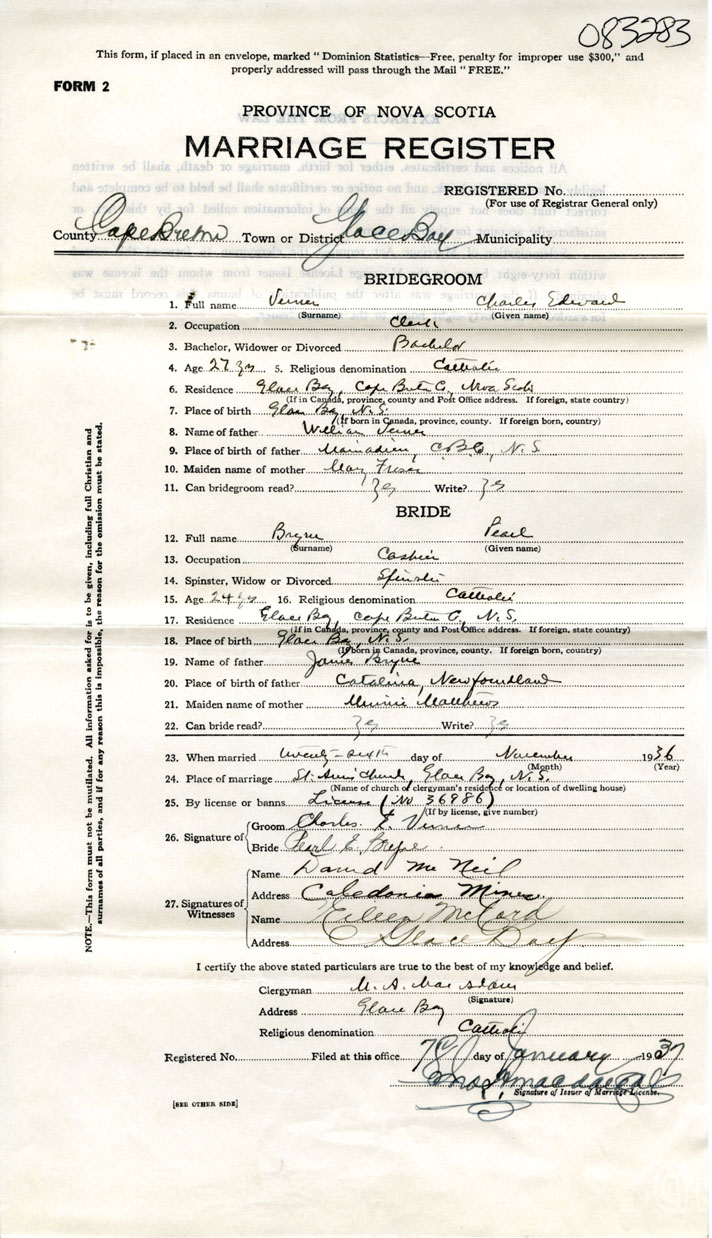 083283
This form, if placed in an envelope, marked "Dominion Statistics—Free, penalty for improper use $300," and
properly addressed will pass through the Mail "FREE."
FORM 2
PROVINCE OF NOVA SCOTIA
MARRIAGE REGISTER
REGISTERED No.
(For use of Registrar General only)
County Cape Breton Town or District Glace Bay Municipality
BRIDEGROOM
1. Full name Charles, Edward
(Surname) (Given name)
2. Occupation Clerk
3. Bachelor, Widower or Divorced Bachelor
4. Age 27 yrs 5. Religious denomination Catholic
6. Residence Glace Bay, Cape Breton C, Nova Scotia
(If in Canada, province, county and Post Office address. If foreign, state country)
7. Place of birth Glace Bay, N.S.
(If born in Canada, province, county. If foreign born, country)
8. Name of father William
9. Place of birth of father Mainadieu, C.B.C., N.S.
10. Maiden name of mother Mary
11. Can bridegroom read? Write?
BRIDE
12. Full name Bryne Pearl
(Surname) (Given name)
13. Occupation Cashier
14. Spinster, Widow or Divorced Spinster
15. Age 24 yrs 16. Religious denomination Catholic
17. Residence Glace Bay, Cape Breton C, N.S.
(If in Canada, province, county and Post Office address. If foreign, state country)
18. Place of birth Glace Bay, N.S.
(If born in Canada, province, county. If foreign born, country)
19. Name of father James Bryne
20. Place of birth of father Catalina, Newfoundland
21. Maiden name of mother Minnie Matthews
22. Can bride read? Write?
23. When married twenty-sixth day of November 1936
(Month) (Year)
24. Place of marriage St. Ann's Church, Glace Bay, N.S.
(Name of church of clergyman's residence or location of dwelling house)
25. By license or banns License (No 36986)
(If by license, give number)
26. Signature of
Groom Charles. E.
Bride Pearl E. Bryne
27. Signatures of Witnesses
Name David McNeil
Address Caledonia Mines
Name Eileen McCord
Address Glace Bay
I certify the above stated particulars are true to the best of my knowledge and belief.
Clergyman M. A. MacAdam
(Signature)
Address Glace Bay
Religious denomination Catholic
Registered No. Filed at this office day of January 1937
Signature of Issuer of Marriage License.
[SEE OTHER SIDE]
NOTE.—This form must not be mutilated. All information asked for is to be given, including full Christian and
surnames of all parties, and if for any reason this is impossible, the reason for the omission must be stated.